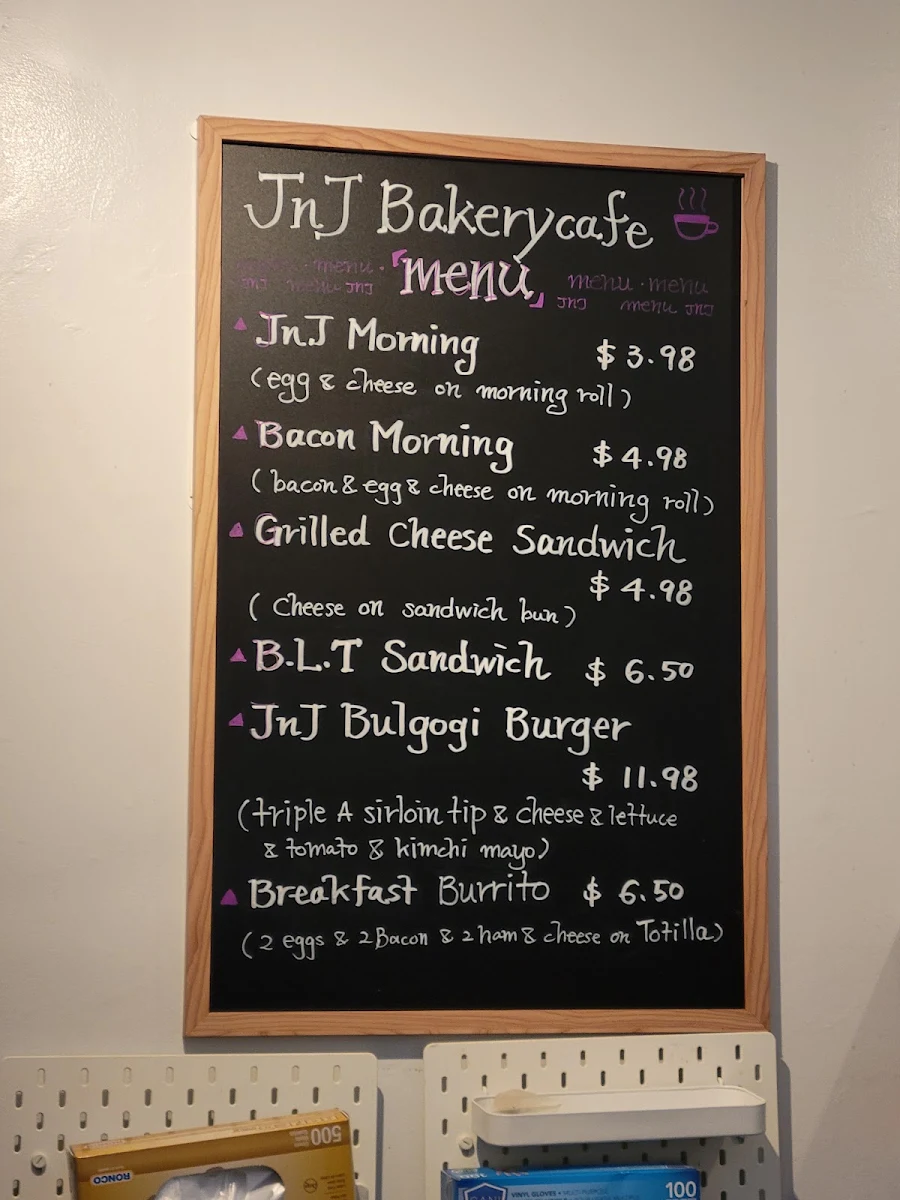 JnJ Bakerycafe
menu · 「menu」 menu · menu
menu JnJ JnJ menu JnJ
JnJ Morning $ 3.98
(egg & cheese on morning roll)
Bacon Morning $ 4.98
(bacon & egg & cheese on morning roll)
Grilled Cheese Sandwich
$ 4.98
(Cheese on sandwich bun)
B.L.T Sandwich $ 6.50
JnJ Bulgogi Burger
$ 11.98
(triple A sirloin tip & cheese & lettuce
& tomato & kimchi mayo)
Breakfast Burrito $ 6.50
(2 eggs & 2 Bacon & 2 ham & cheese on Totilla)
500
RONCO
100
VINYL GLOVES